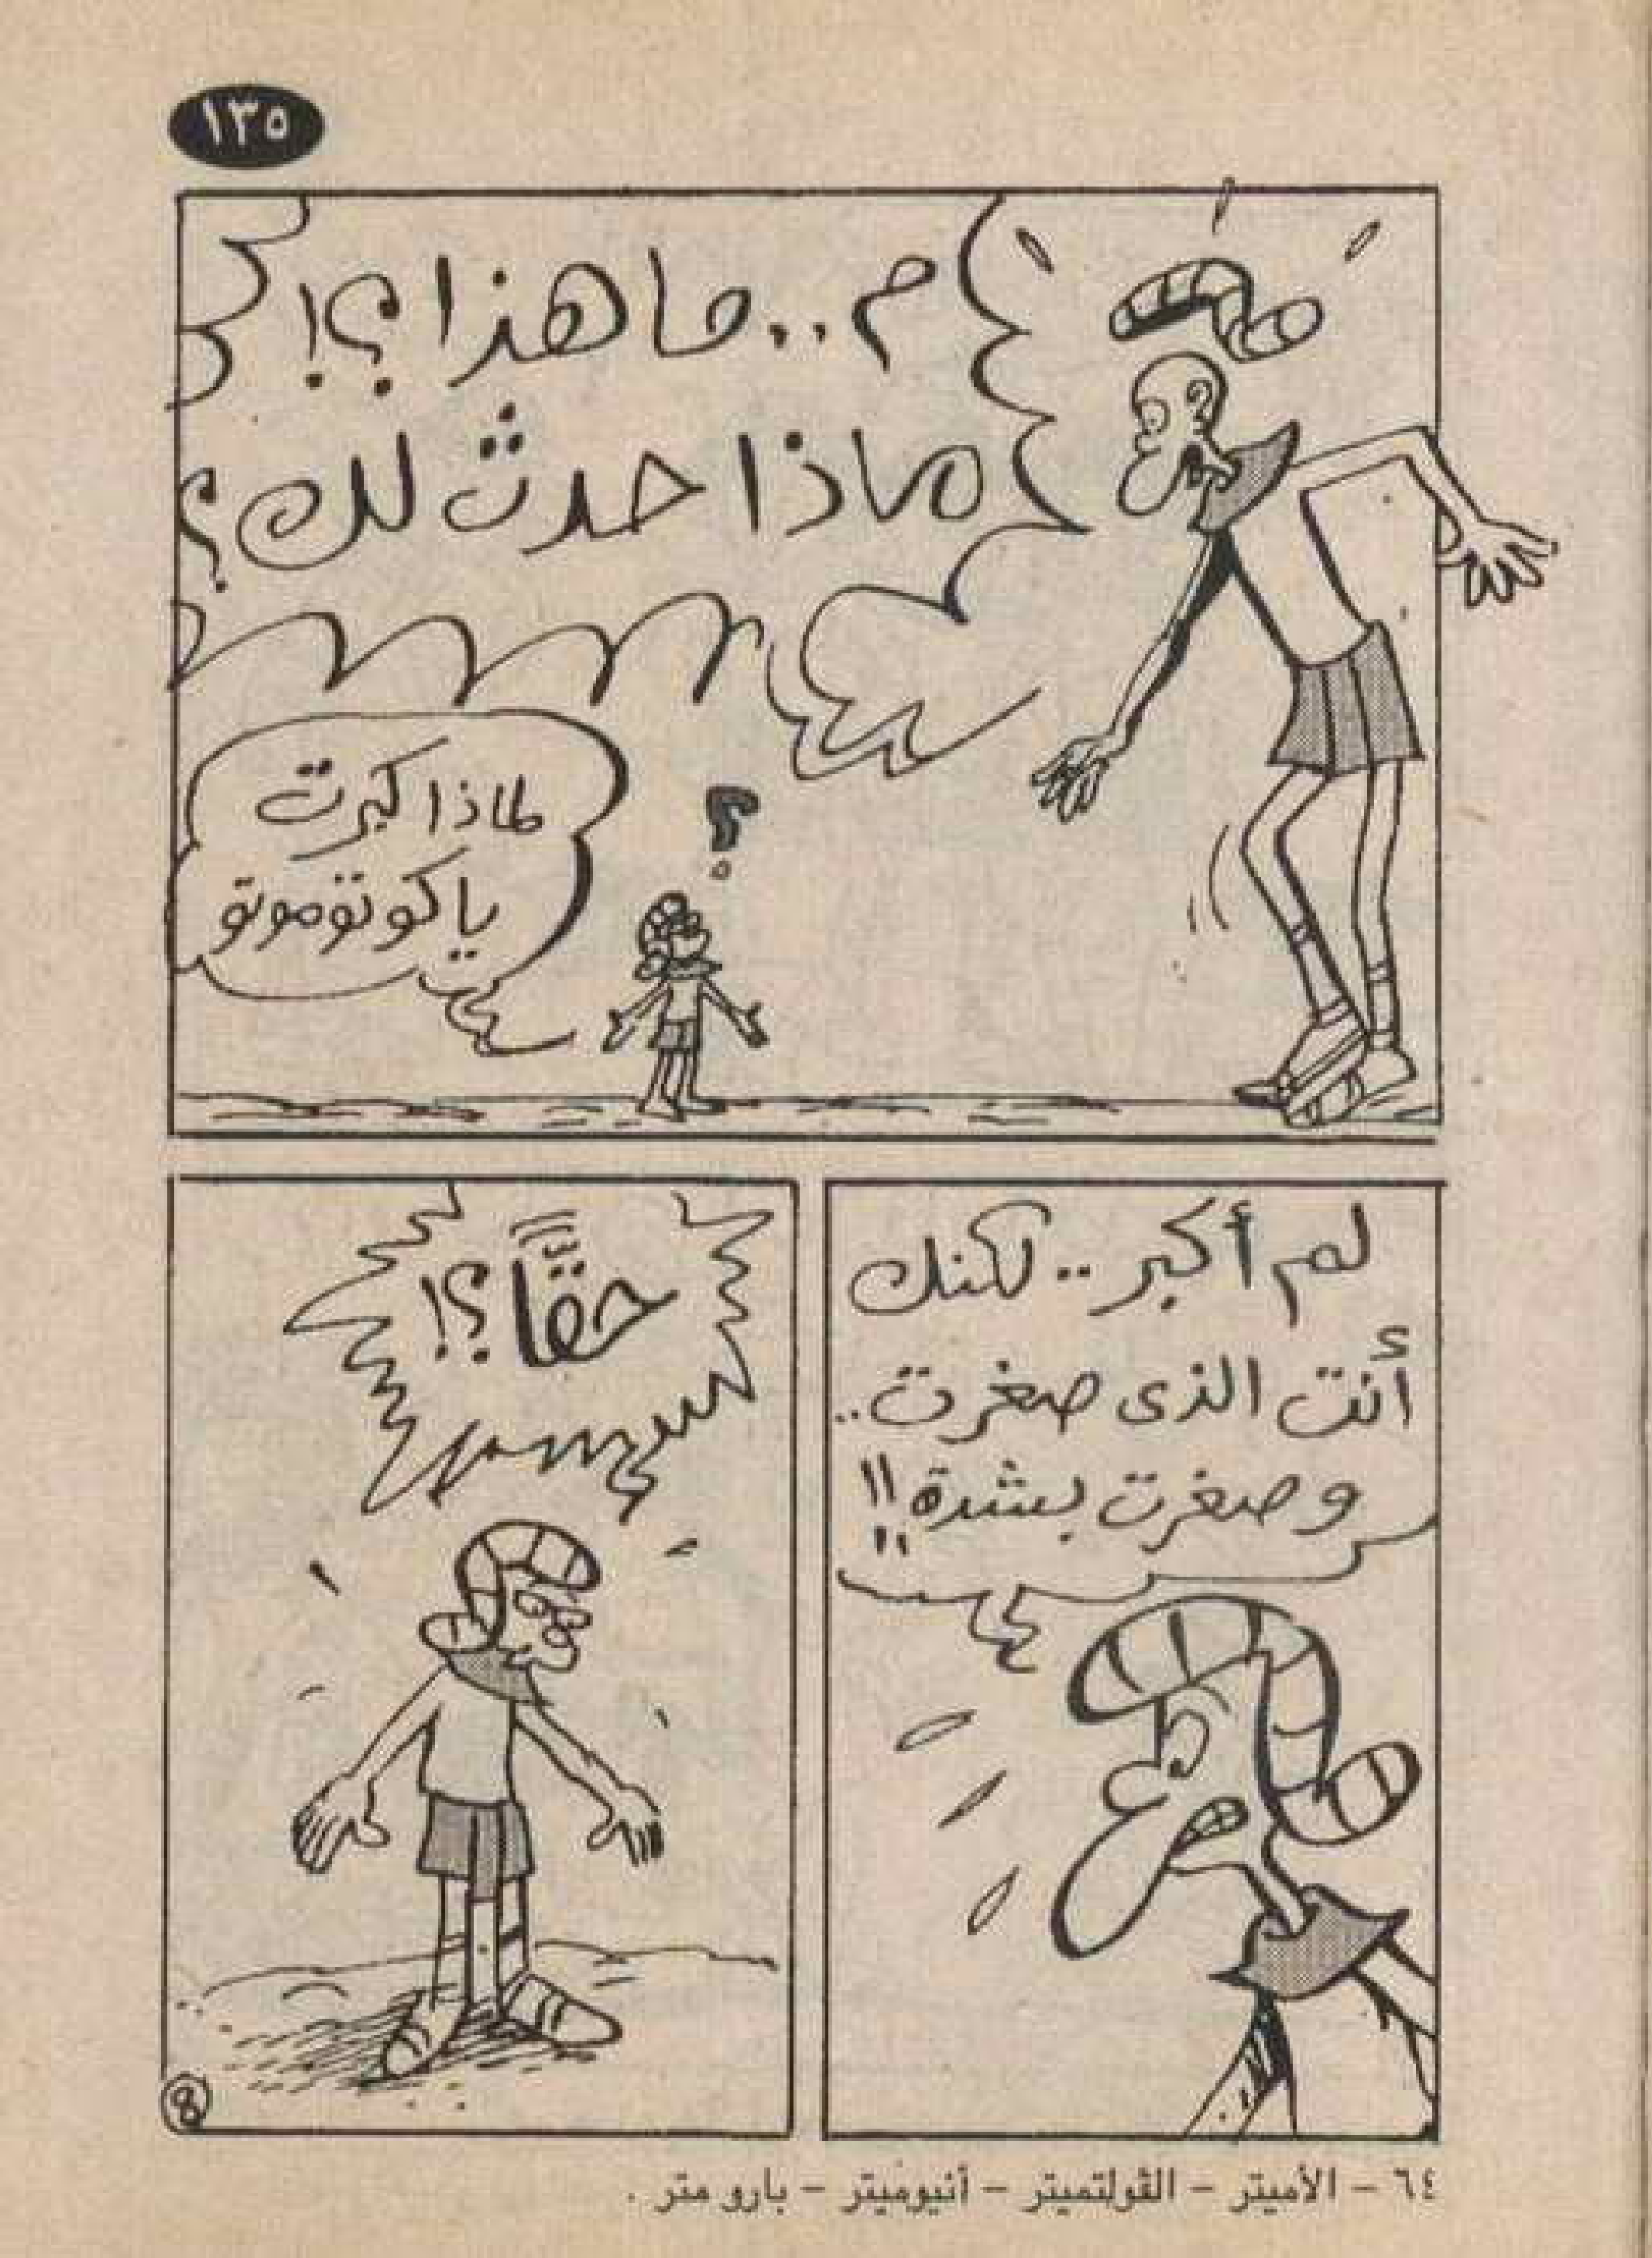 ١٣٥
م..ما هذا ؟!
ماذا حدث لك ؟
؟
لماذا كبرت
يا كوتوموتو
لم أكبر .. لكنك
أنت الذى صغرت ..
وصغرت بشدة !!
حقًا ؟!
8
٦٤ - الأميتر - الڤولتميتر - أنيوميتر - بارو متر .